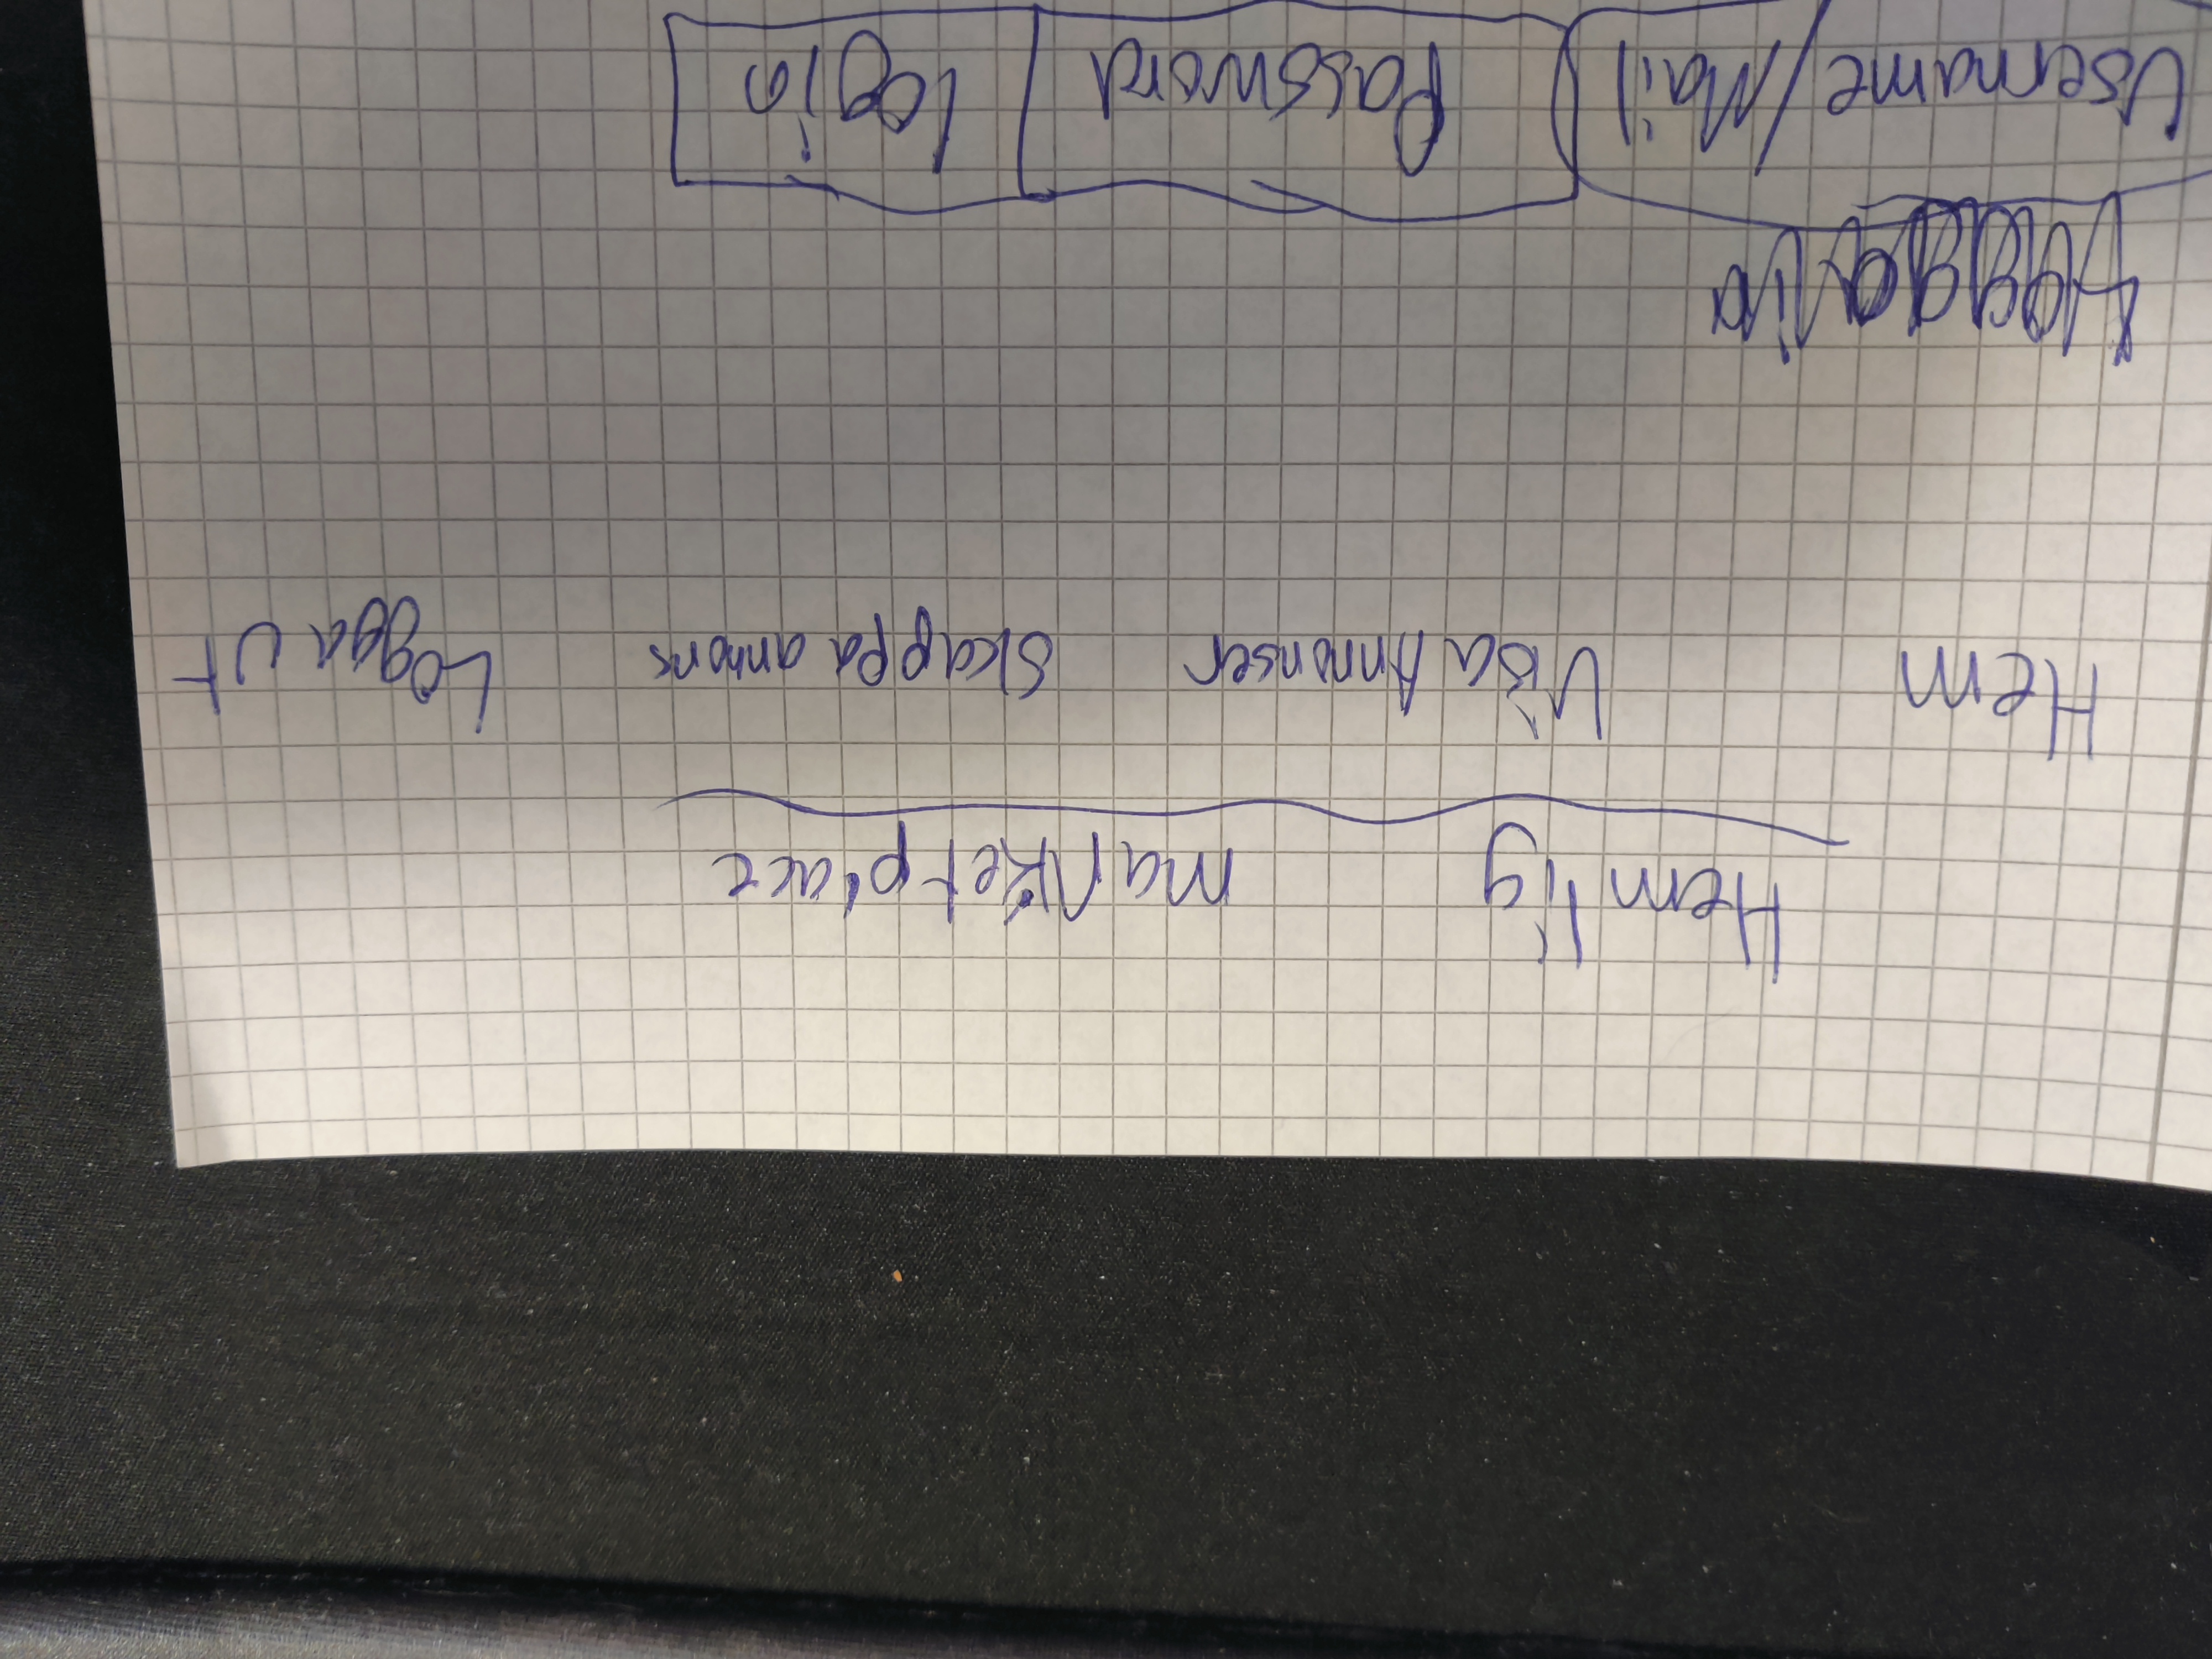 Hemlig marketplace
Hem Visa Annonser Skappa annons Logga ut
Logga in
Username/Mail Password login